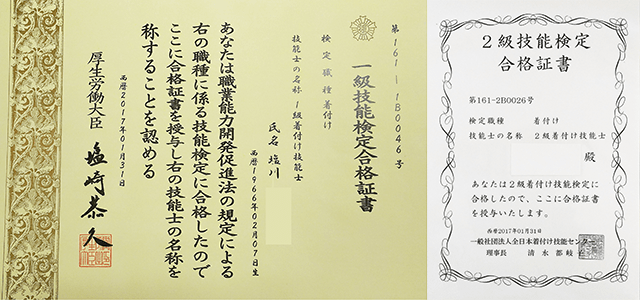 第161-1B0046号
一級技能検定合格証書
検定職種 着付け
技能士の名称 1級着付け技能士
氏名 塩川
西暦1966年02月07日生
あなたは職業能力開発促進法の規定による
右の職種に係る技能検定に合格したので
ここに合格証書を授与し右の技能士の名称を
称することを認める
西暦2017年01月31日
厚生労働大臣 塩崎恭久
2級技能検定
合格証書
第161-2B0026号
検定職種 着付け
技能士の名称 2級着付け技能士
殿
あなたは2級着付け技能検定に
合格したので、ここに合格証書
を授与いたします。
西暦2017年01月31日
一般社団法人全日本着付け技能センター
理事長 清水都岐